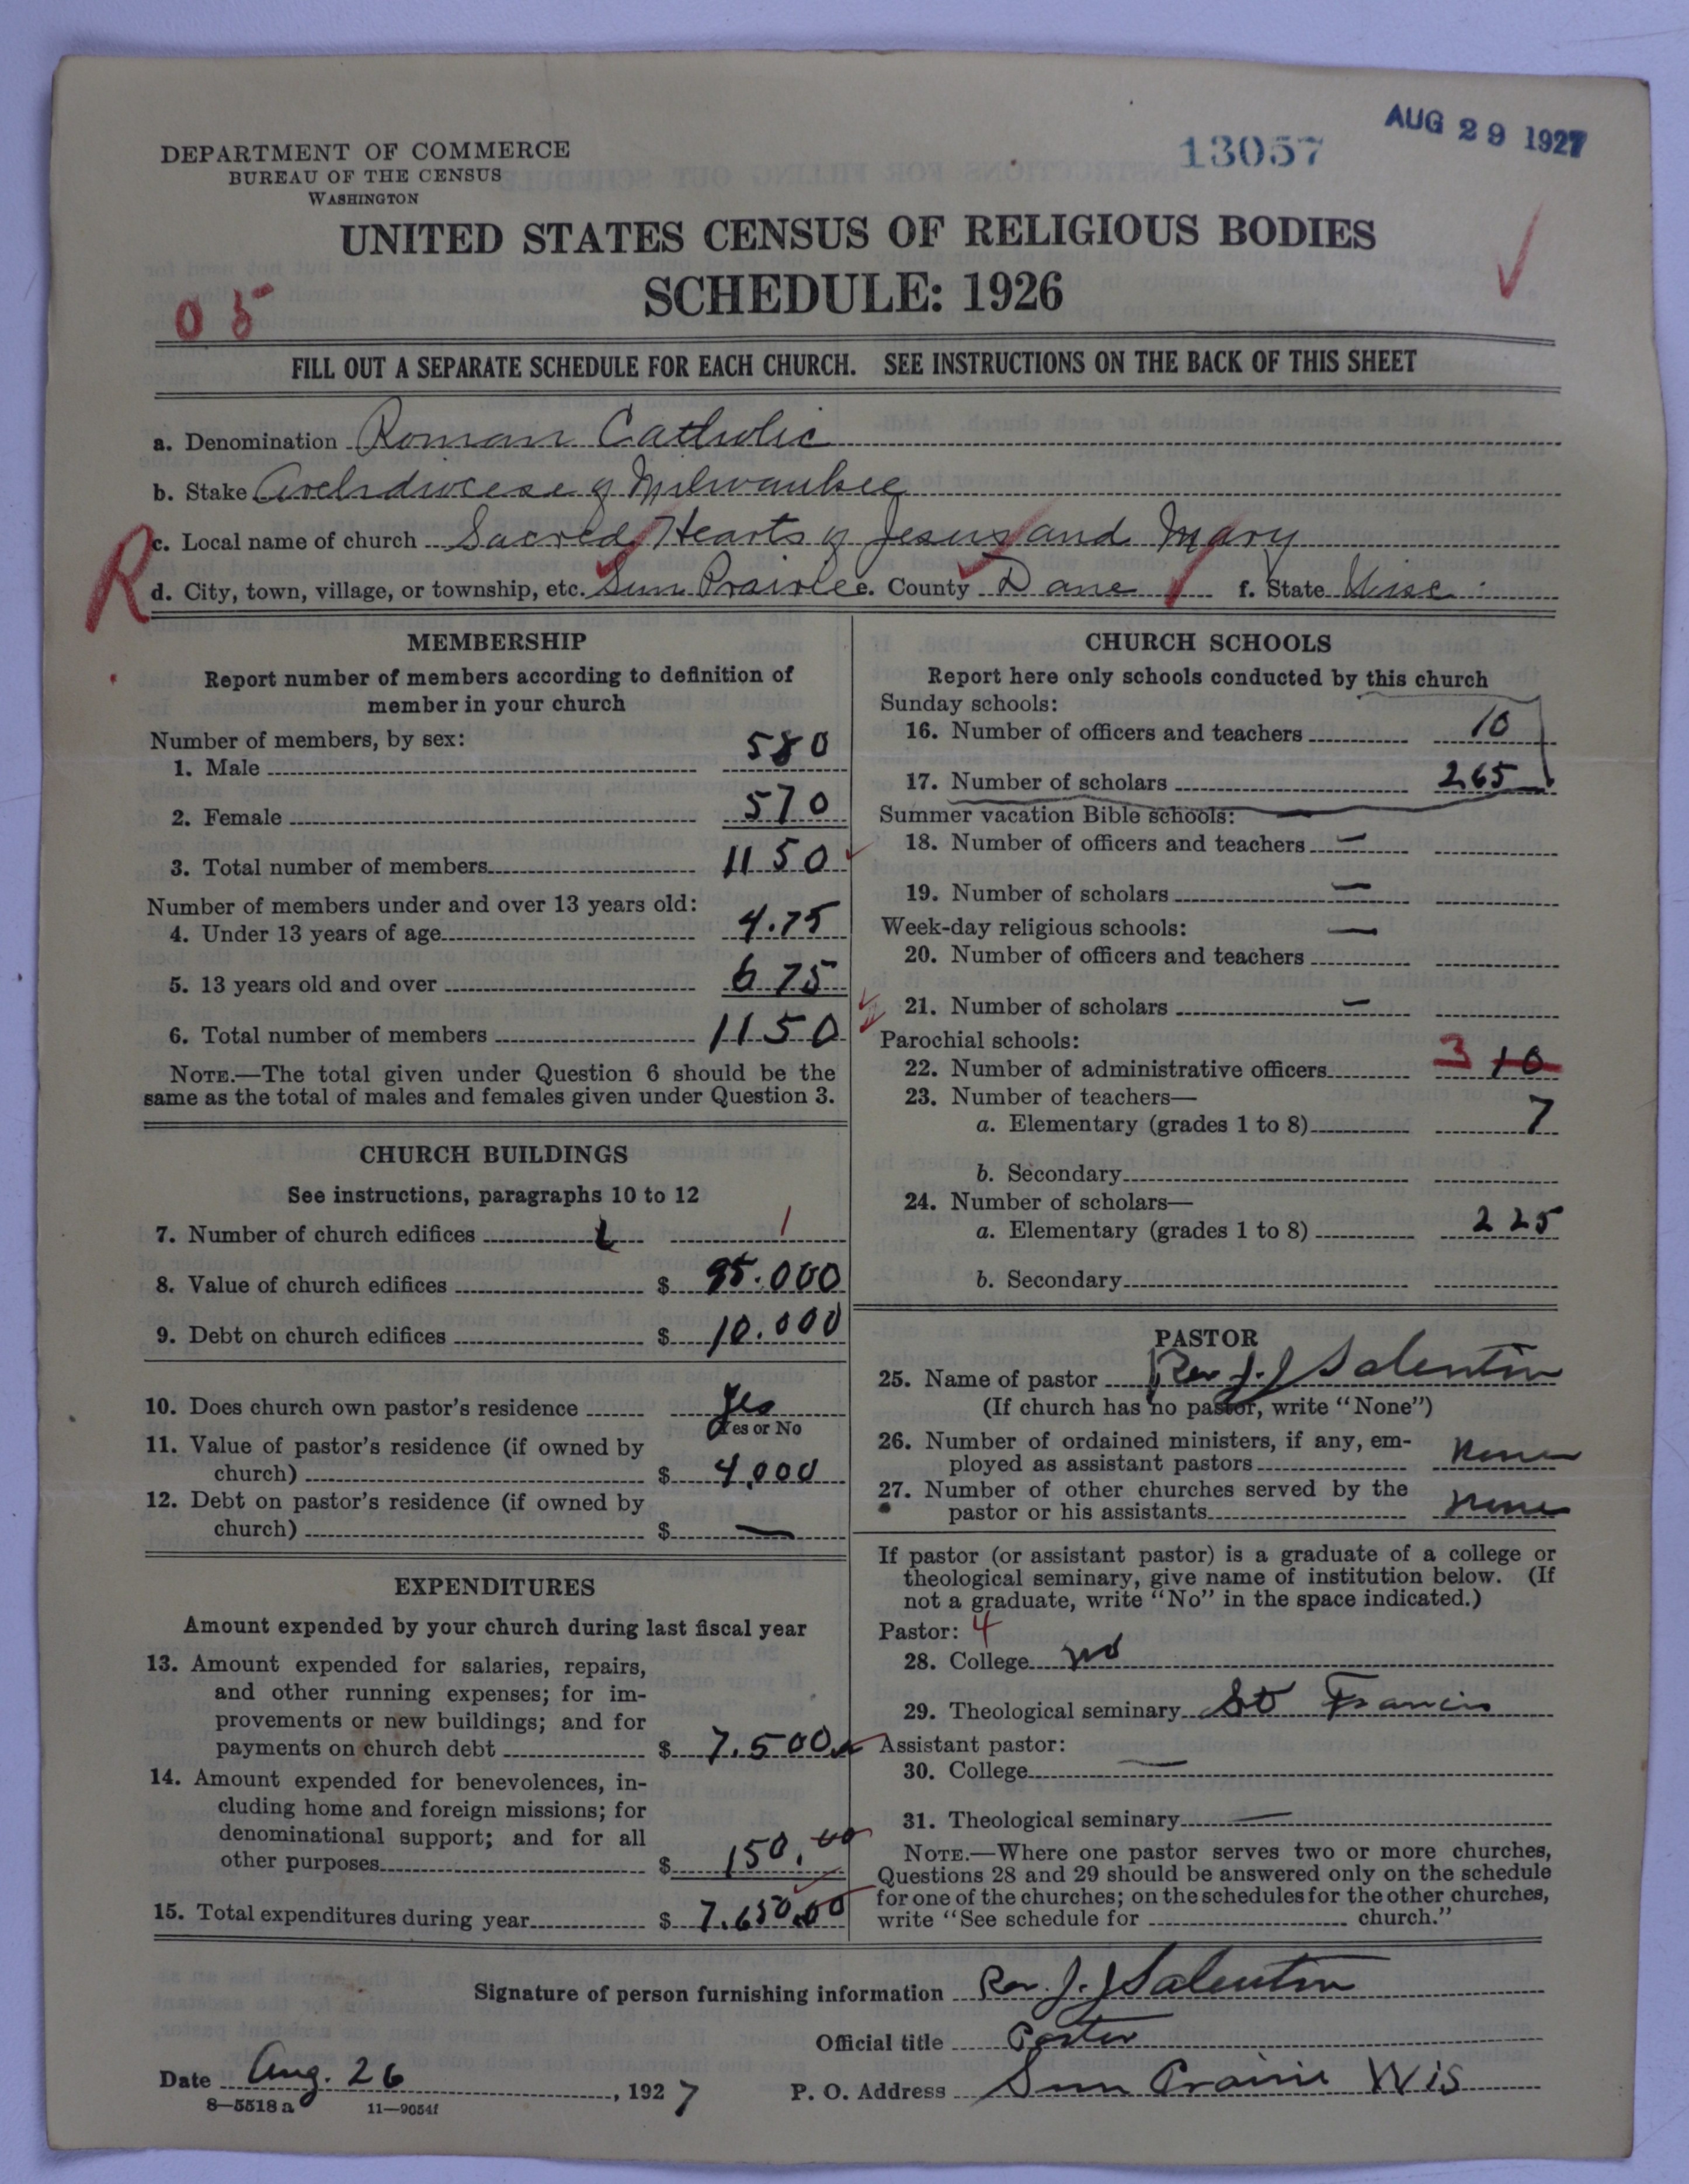 AUG 29 1927
13057
DEPARTMENT OF COMMERCE
BUREAU OF THE CENSUS
WASHINGTON
UNITED STATES CENSUS OF RELIGIOUS BODIES
SCHEDULE: 1926
05
FILL OUT A SEPARATE SCHEDULE FOR EACH CHURCH. SEE INSTRUCTIONS ON THE BACK OF THIS SHEET
a. Denomination Roman Catholic
b. Stake Archdiocese of Milwaukee
R
c. Local name of church Sacred Hearts of Jesus and Mary
d. City, town, village, or township, etc. Sun Prairie e. County Dane f. State Wisc
MEMBERSHIP
Report number of members according to definition of
member in your church
Number of members, by sex:
1. Male 580
2. Female 570
3. Total number of members 1150
Number of members under and over 13 years old:
4. Under 13 years of age 4.75
5. 13 years old and over 675
6. Total number of members 1150
NOTE.—The total given under Question 6 should be the
same as the total of males and females given under Question 3.
CHURCH BUILDINGS
See instructions, paragraphs 10 to 12
7. Number of church edifices 1 1
8. Value of church edifices $ 95.000
9. Debt on church edifices $ 10.000
10. Does church own pastor's residence Yes
Yes or No
11. Value of pastor's residence (if owned by
church) $ 4,000
12. Debt on pastor's residence (if owned by
church) $ —
EXPENDITURES
Amount expended by your church during last fiscal year
13. Amount expended for salaries, repairs,
and other running expenses; for im-
provements or new buildings; and for
payments on church debt $ 7.500
14. Amount expended for benevolences, in-
cluding home and foreign missions; for
denominational support; and for all
other purposes $ 150.00
15. Total expenditures during year $ 7.650.00
CHURCH SCHOOLS
Report here only schools conducted by this church
Sunday schools:
16. Number of officers and teachers 10
17. Number of scholars 265
Summer vacation Bible schools: —
18. Number of officers and teachers —
19. Number of scholars —
Week-day religious schools: —
20. Number of officers and teachers
21. Number of scholars —
Parochial schools:
22. Number of administrative officers 3 10
23. Number of teachers—
a. Elementary (grades 1 to 8) 7
b. Secondary
24. Number of scholars—
a. Elementary (grades 1 to 8) 225
b. Secondary
PASTOR
25. Name of pastor Rev J. J Salentin
(If church has no pastor, write "None")
26. Number of ordained ministers, if any, em-
ployed as assistant pastors None
27. Number of other churches served by the
pastor or his assistants None
If pastor (or assistant pastor) is a graduate of a college or
theological seminary, give name of institution below. (If
not a graduate, write "No" in the space indicated.)
Pastor: 4
28. College no
29. Theological seminary St Francis
Assistant pastor:
30. College —
31. Theological seminary —
NOTE.—Where one pastor serves two or more churches,
Questions 28 and 29 should be answered only on the schedule
for one of the churches; on the schedules for the other churches,
write "See schedule for church."
Signature of person furnishing information Rev. J. J Salentin
Official title Pastor
Date Aug. 26, 1927
P. O. Address Sun Prairie Wis
8—5518 a 11—9054f